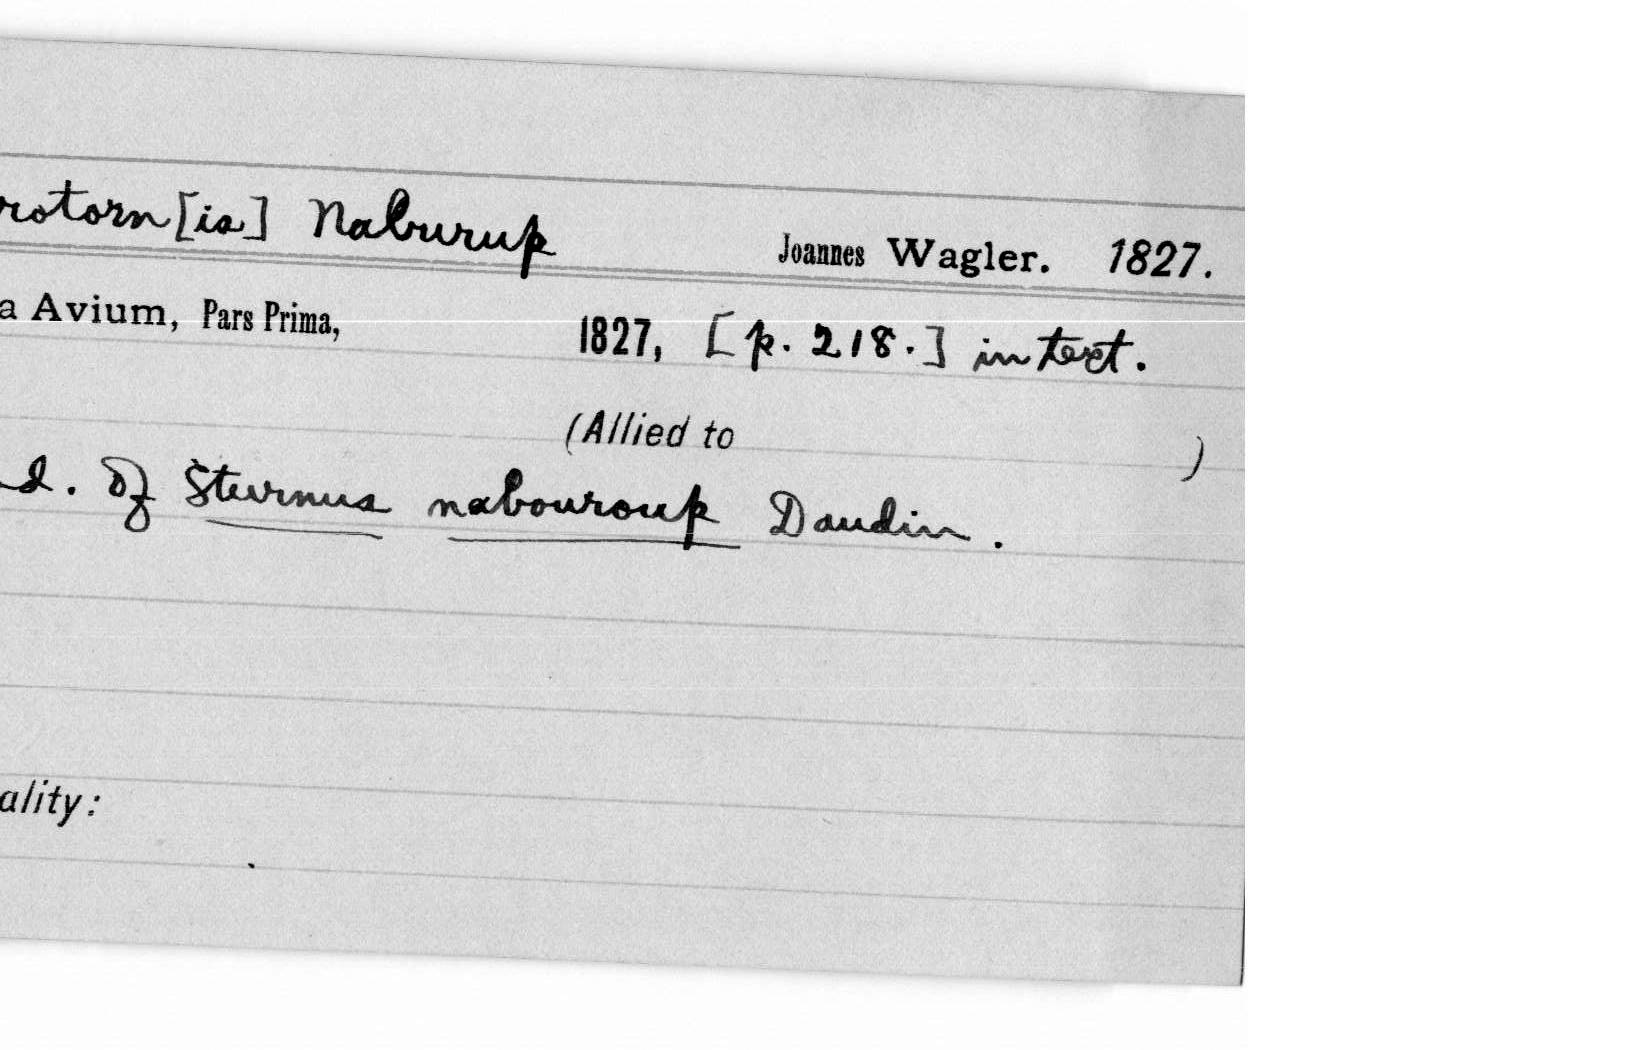 rotorn[is] Naburup Joannes Wagler. 1827.
a Avium, Pars Prima, 1827, [p. 218.] in text.
(Allied to )
d. of Sturnus nabouroup Daudin.
ality: